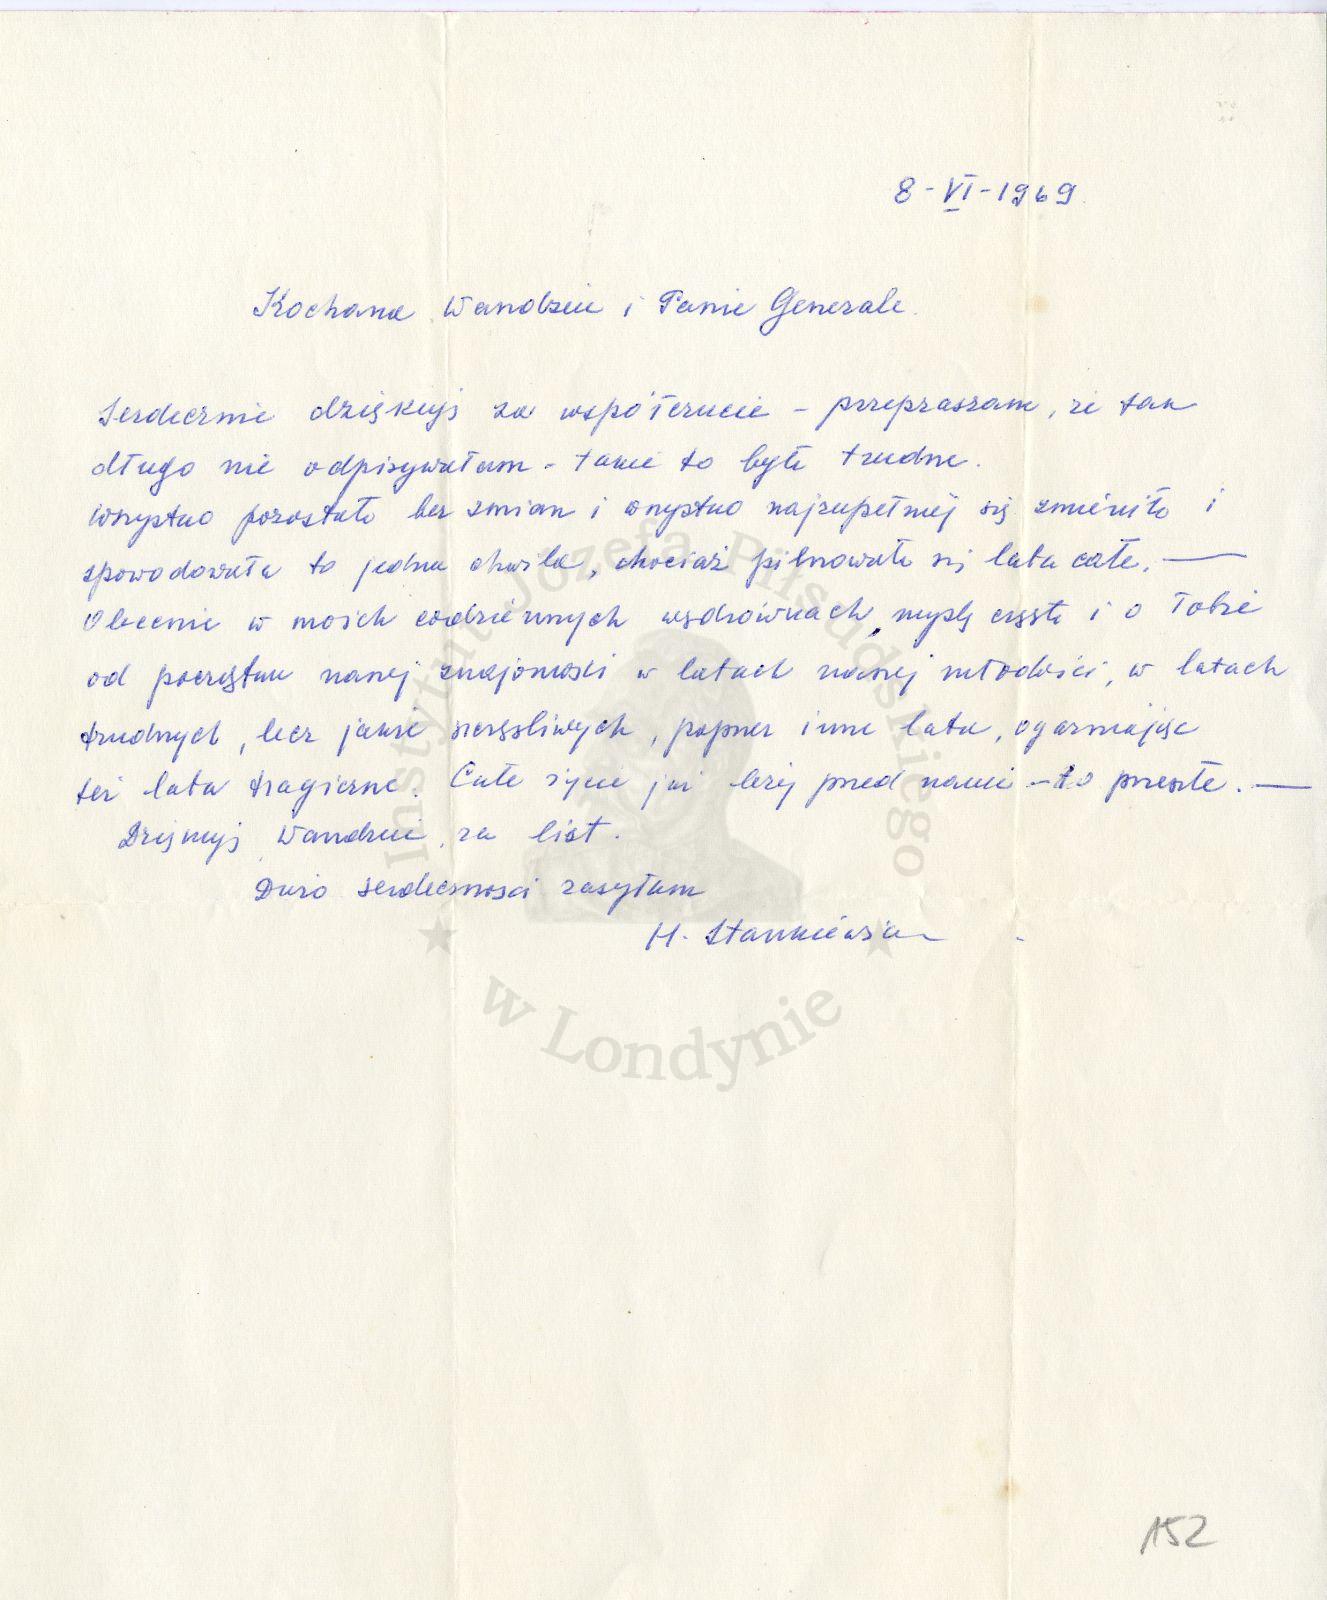 8-VI-1969
Kochana Wandziu i Panie Generale.
Serdecznie dziękuję za współczucie - przepraszam, że tak
długo nie odpisywałam - takie to było trudne.
Wszystko pozostało bez zmian i wszystko najzupełniej się zmieniło i
spowodowała to jedna chwila, chociaż pilnowała się lata całe. —
Obecnie w moich codziennych wędrówkach, myślę często i o Tobie
od początku naszej znajomości w latach naszej młodości, w latach
trudnych, lecz jakże szczęśliwych, poprzez inne lata, ogarniając
też lata tragiczne. Całe życie już leży przed nami - to przeszłe. —
Dziękuję, Wandziu, za list.
Dużo serdeczności zasyłam
H. Stankiewicz
Instytut Józefa Piłsudskiego
w Londynie
152